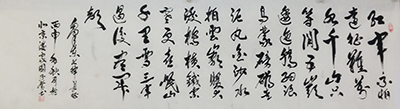 红军不怕
远征难万
水千山只
等闲五岭
逶迤腾细浪
乌蒙磅礴走
泥丸金沙水
拍云崖暖大
渡桥横铁索
寒更喜岷山
千里雪三军
过后尽开
颜
毛泽东七律长征
丙申年秋月于
北京潘家园